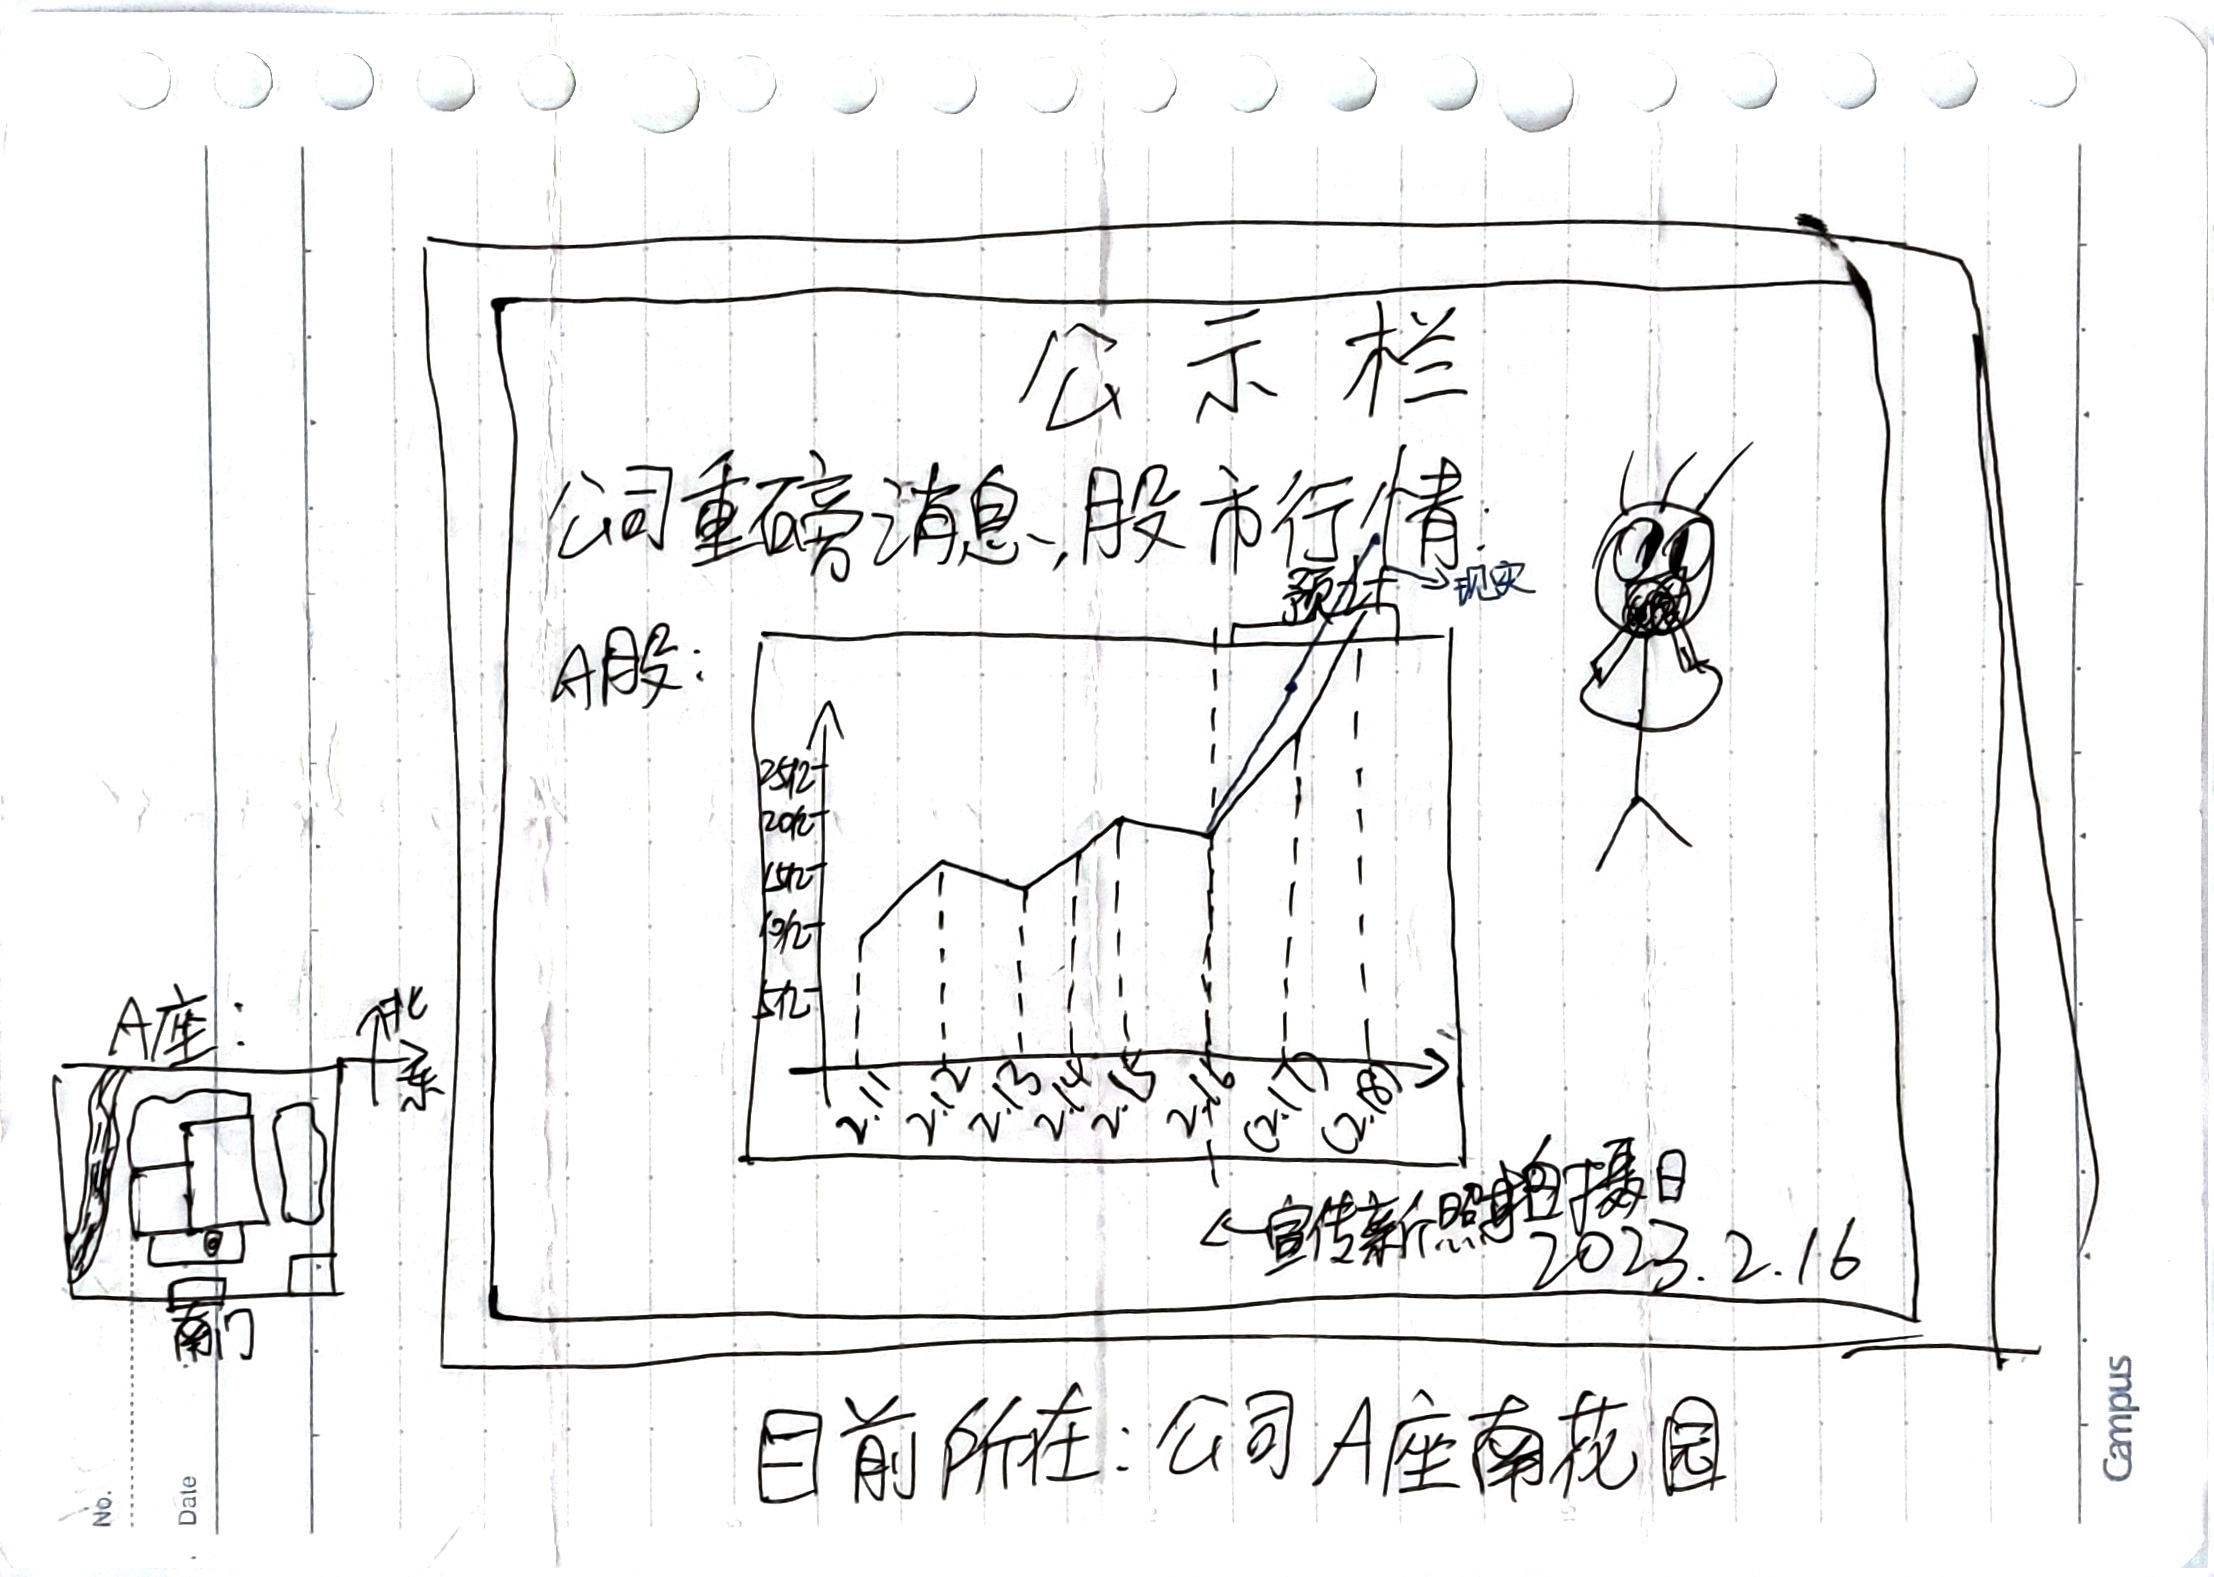 公示栏
公司重磅消息,股市行情:
预计
→现实
A股:
25亿
20亿
15亿
10亿
5亿
2.11
2.12
2.13
2.14
2.15
2.16
(2.17)
(2.18)
←宣传新照拍摄日
2023.2.16
A座:
北
东
南门
目前所在:公司A座南花园
No.
Date
Campus